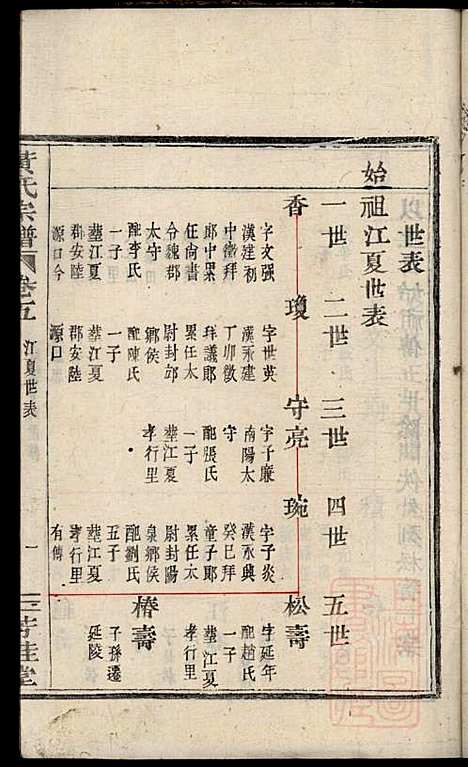 世表
始祖江夏世表
一世 二世 三世 四世 五世
香
字文强
漢建初
中徵拜
郎中累
任尚書
分魏郡
太守
配李氏
一子
塟江夏
郡安陸
源口今
瓊
字世英
漢永建
丁卯徵
拜議郎
累任太
尉封邟
鄉侯
配陳氏
一子
塟江夏
郡安陸
源口
守亮
字子廉
南陽太
守
配張氏
一子
塟江夏
孝行里
琬
字子炎
漢永興
癸巳拜
童子郎
累任太
尉封陽
泉鄉侯
配劉氏
五子
塟江夏
孝行里
有傳
松壽
字延年
配趙氏
一子
塟江夏
孝行里
椿壽
子孫遷
延陵
黃氏宗譜 卷五 江夏世表 一